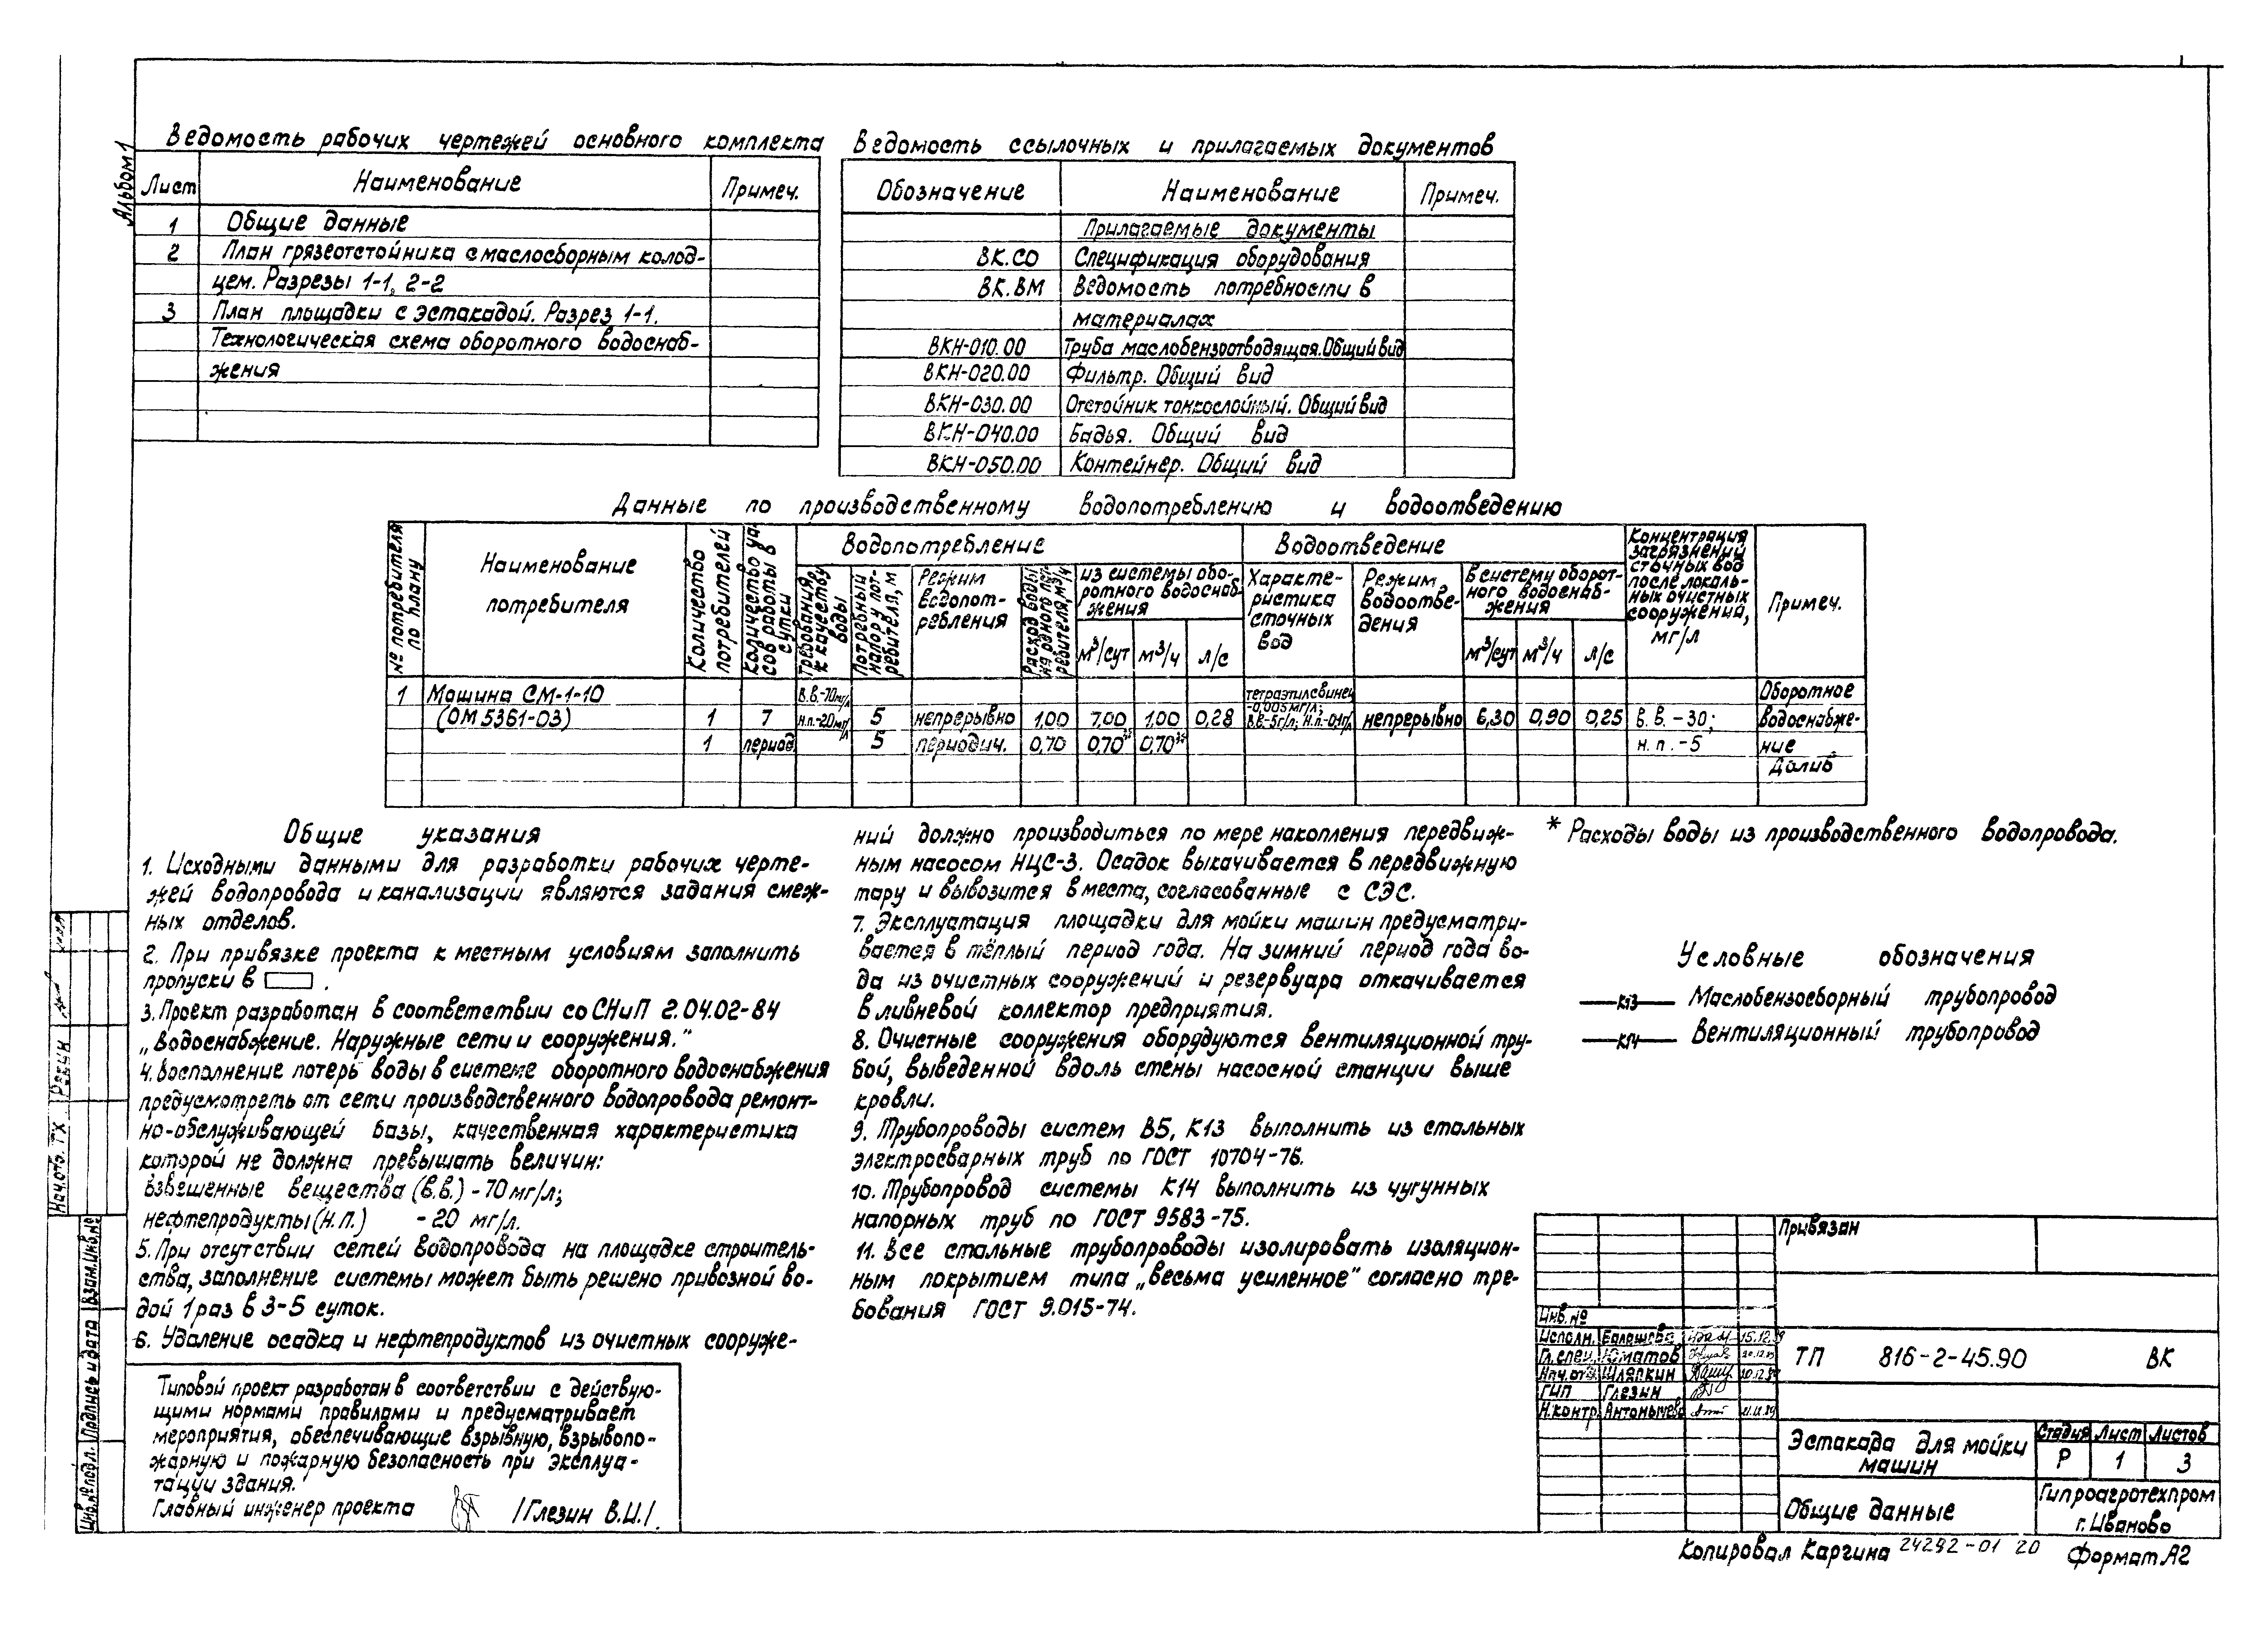 Альбом 1
Ведомость рабочих чертежей основного комплекта
Лист Наименование Примеч.
1 Общие данные
2 План грязеотстойника с маслосборным колод-
цем. Разрезы 1-1, 2-2
3 План площадки с эстакадой. Разрез 1-1.
Технологическая схема оборотного водоснаб-
жения
Ведомость ссылочных и прилагаемых документов
Обозначение Наименование Примеч.
Прилагаемые документы
ВК.СО Спецификация оборудования
ВК.ВМ Ведомость потребности в
материалах
ВКН-010.00 Труба маслобензоотводящая. Общий вид
ВКН-020.00 Фильтр. Общий вид
ВКН-030.00 Отстойник тонкослойный. Общий вид
ВКН-040.00 Бадья. Общий вид
ВКН-050.00 Контейнер. Общий вид
Данные по производственному водопотреблению и водоотведению
№ потребителя
по плану
Наименование
потребителя
Количество
потребителей
Количество ча-
сов работы в
сутки
Водопотребление
Требования
к качеству
воды
Потребный
напор у пот-
ребителя, м
Режим
водопот-
ребления
Расход воды
на одного пот-
ребителя, м³/ч
из системы обо-
ротного водоснаб-
жения
м³/сут м³/ч л/с
Водоотведение
Характе-
ристика
сточных
вод
Режим
водоотве-
дения
В систему оборот-
ного водоснаб-
жения
м³/сут м³/ч л/с
Концентрация
загрязнений
сточных вод
после локаль-
ных очистных
сооружений,
мг/л
Примеч.
1 Машина СМ-1-10 В.В.-70мг/л тетраэтилсвинец Оборотное
(ОМ 5361-03) 1 7 н.п.-20мг/л 5 непрерывно 1,00 7,00 1,00 0,28 -0,005мг/л; В.В-5г/л; Н.п.-0,1г/л непрерывно 6,30 0,90 0,25 В.В. -30; водоснабже-
1 период. 5 периодич. 0,70 0,70* 0,70* н.п. -5 ние
Долив
Общие указания
1. Исходными данными для разработки рабочих черте-
жей водопровода и канализации являются задания смеж-
ных отделов.
2. При привязке проекта к местным условиям заполнить
пропуски в .
3. Проект разработан в соответствии со СНиП 2.04.02-84
„Водоснабжение. Наружные сети и сооружения."
4. Восполнение потерь воды в системе оборотного водоснабжения
предусмотреть от сети производственного водопровода ремонт-
но-обслуживающей базы, качественная характеристика
которой не должна превышать величин:
взвешенные вещества (В.В.) -70 мг/л;
нефтепродукты (Н.П.) -20 мг/л.
5. При отсутствии сетей водопровода на площадке строитель-
ства, заполнение системы может быть решено привозной во-
дой 1 раз в 3-5 суток.
6. Удаление осадка и нефтепродуктов из очистных сооруже-
ний должно производиться по мере накопления передвиж-
ным насосом НЦС-3. Осадок выкачивается в передвижную
тару и вывозится в места, согласованные с СЭС.
7. Эксплуатация площадки для мойки машин предусматри-
вается в тёплый период года. На зимний период года во-
да из очистных сооружений и резервуара откачивается
в ливневой коллектор предприятия.
8. Очистные сооружения оборудуются вентиляционной тру-
бой, выведенной вдоль стены насосной станции выше
кровли.
9. Трубопроводы систем В5, К13 выполнить из стальных
электросварных труб по ГОСТ 10704-76.
10. Трубопровод системы К14 выполнить из чугунных
напорных труб по ГОСТ 9583-75.
11. Все стальные трубопроводы изолировать изоляцион-
ным покрытием типа „весьма усиленное" согласно тре-
бования ГОСТ 9.015-74.
* Расходы воды из производственного водопровода.
Условные обозначения
К13 Маслобензосборный трубопровод
К14 Вентиляционный трубопровод
Типовой проект разработан в соответствии с действую-
щими нормами правилами и предусматривает
мероприятия, обеспечивающие взрывную, взрывопо-
жарную и пожарную безопасность при эксплуа-
тации здания.
Главный инженер проекта /Глезин В.И./.
Нач. отд. ТХ
Взам. Инв. №
Подпись и дата
Инв. № подл.
Привязан
Инв. №
Исполн. Балашова 15.12.89
Гл. спец. Юматов 20.12.89
Нач. отд. Шляпкин 20.12.89
ГИП Глезин
Н.контр. Антонычева
ТП 816-2-45.90 ВК
Эстакада для мойки
машин
Стадия Лист Листов
Р 1 3
Общие данные
Гипроагротехпром
г. Иваново
Копировал Каргина 24292-01 20 Формат А2